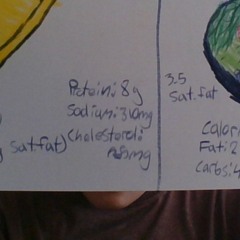 Protein: 8g
Sodium: 310mg
Cholesterol:
mg
sat fat)
3.5
Sat. fat
Calor
Fat: 2
Carbs: 4